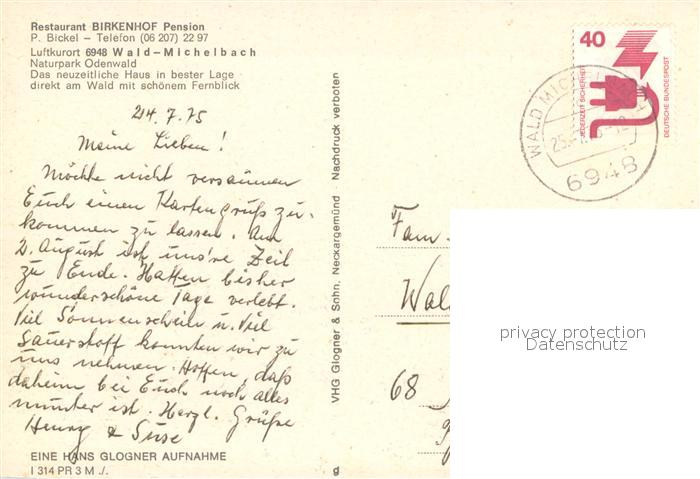 Restaurant BIRKENHOF Pension
P. Bickel – Telefon (06 207) 22 97
Luftkurort 6948 Wald-Michelbach
Naturpark Odenwald
Das neuzeitliche Haus in bester Lage
direkt am Wald mit schönem Fernblick
24.7.75
Meine Lieben!
Möchte nicht versäumen
Euch einen Kartengruß zu-
kommen zu lassen. Am
2. August ist uns're Zeit
zu Ende. Hatten bisher
wunderschöne Tage verlebt.
Viel Sonnenschein u. viel
Sauerstoff konnten wir zu
uns nehmen. Hoffen, daß
daheim bei Euch noch alles
munter ist. Herzl. Grüße
Henny & Suse
EINE HANS GLOGNER AUFNAHME
I 314 PR 3 M ./.
VHG Glogner & Sohn, Neckargemünd Nachdruck verboten
g
40
JEDERZEIT SICHERHEIT
DEUTSCHE BUNDESPOST
WALD MICHEL
6948
Fam.
Wal
68
privacy protection
Datenschutz